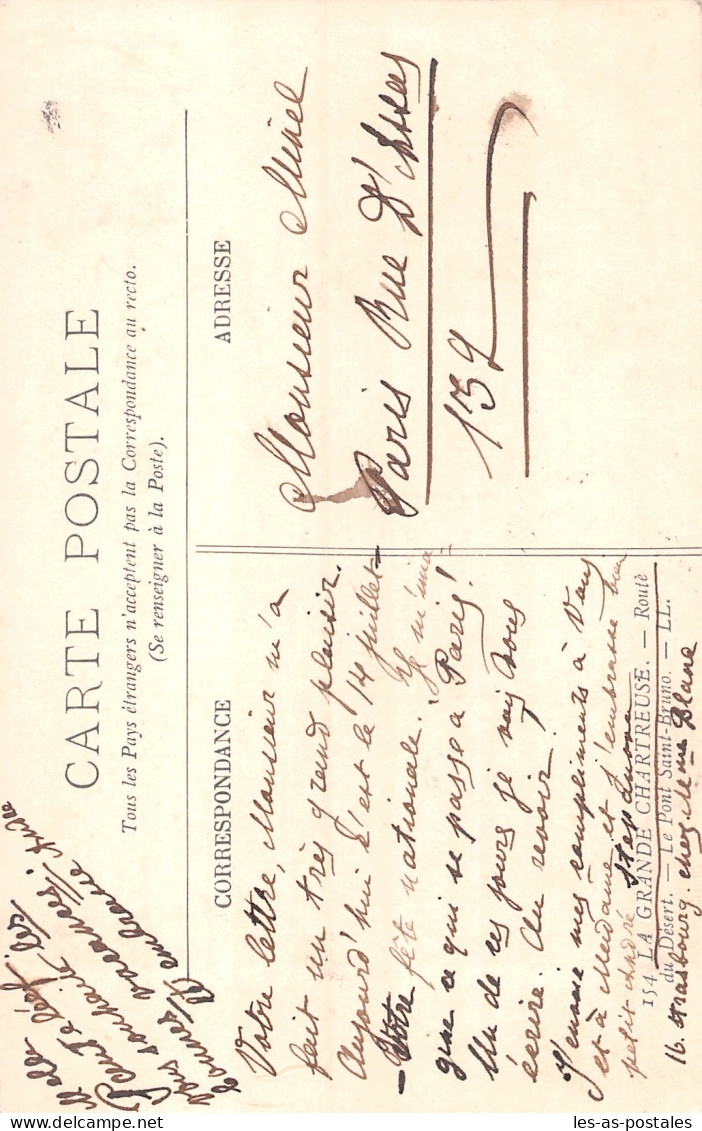 CARTE POSTALE
Tous les Pays étrangers n'acceptent pas la Correspondance au recto.
(Se renseigner à la Poste).
CORRESPONDANCE
Votre lettre, Monsieur m'a
fait un très grand plaisir.
Aujourd'hui c'est le 14 juillet –
– Votre fête nationale. J'
gine ce qui se passe à Paris!
Un de ces jours je vais vous
écrire. Au revoir!
J'envoie mes compliments à Vous
et à Madame et j'embrasse
petit André
154 LA GRANDE CHARTREUSE. — Route
du Désert. — Le Pont Saint-Bruno. — LL.
16. Strasbourg. chez Mme Blanc
ADRESSE
Monsieur
Paris Rue D'Assas
139
vous souhaite de
bonnes vacances!
les-as-postales